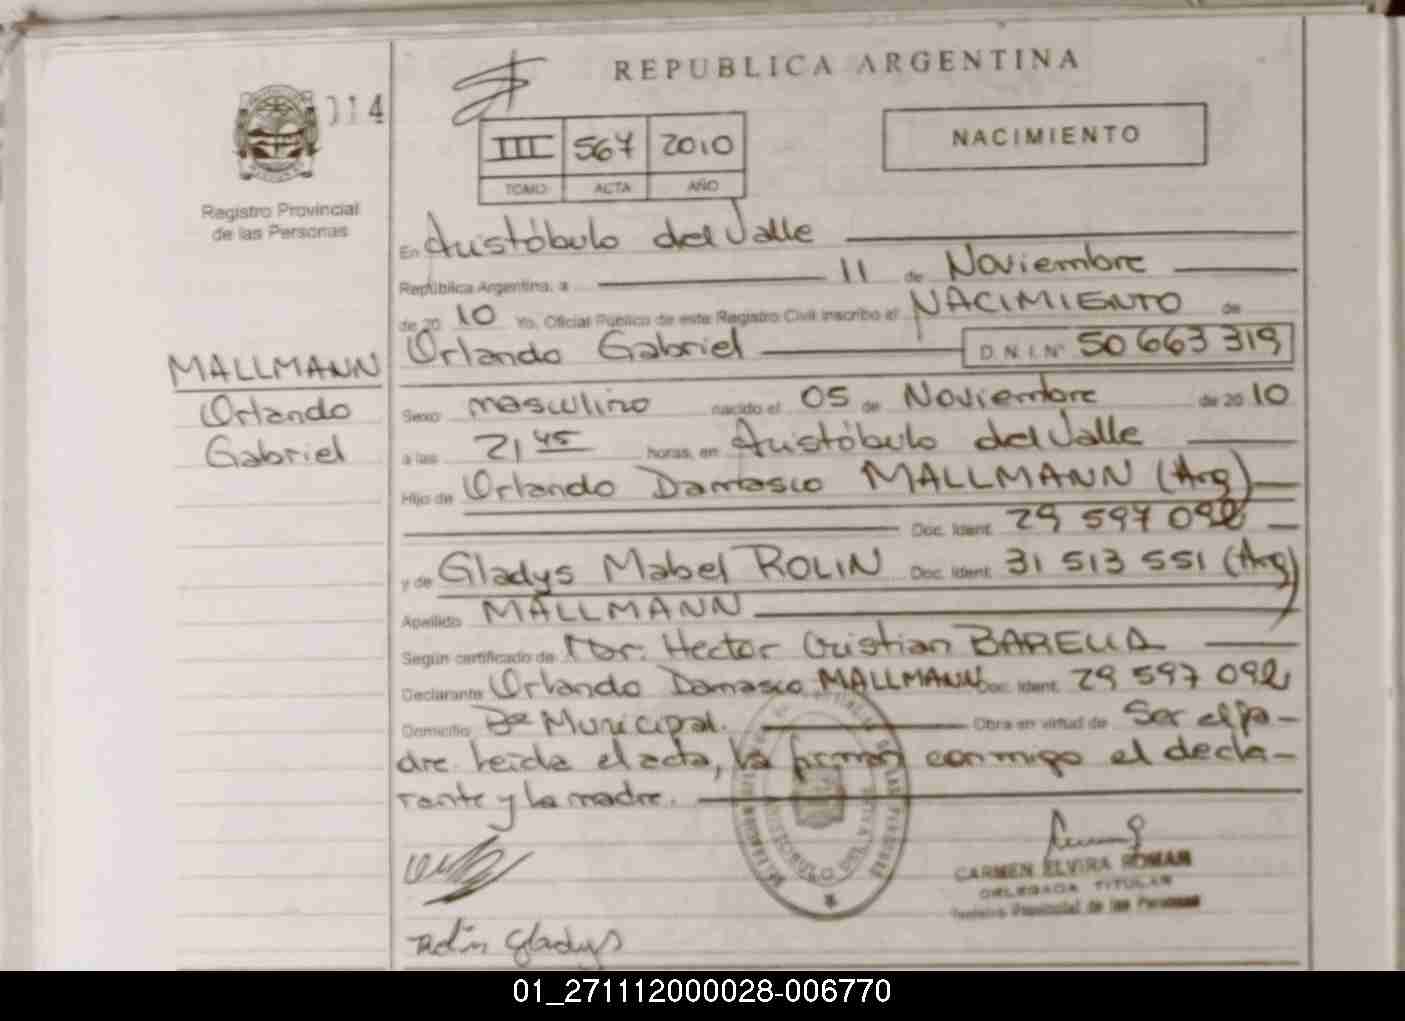 REPUBLICA ARGENTINA
114
III 567 2010
TOMO ACTA AÑO
NACIMIENTO
Registro Provincial
de las Personas
En Aristóbulo del Valle
República Argentina, a 11 de Noviembre
de 20 10 Yo, Oficial Público de este Registro Civil inscribo el NACIMIENTO de
Orlando Gabriel D.N.I.Nº 50 663 319
MALLMANN
Orlando
Gabriel
Sexo masculino nacido el 05 de Noviembre de 20 10
a las 21 45 horas, en Aristóbulo del Valle
Hijo de Orlando Damasco MALLMANN (Arg)
Doc. Ident. 29 597 092
y de Gladys Mabel ROLIN Doc. Ident. 31 513 551 (Arg)
Apellido MALLMANN
Según certificado de Hector Cristian BARELLA
Declarante Orlando Damasco MALLMANN Doc. Ident. 29 597 092
Domicilio Bº Municipal. Obra en virtud de Ser el pa-
dre. Leída el acta, la firman conmigo el decla-
rante y la madre.
CARMEN ELVIRA ROMAN
DELEGADA TITULAR
Registro Provincial de las Personas
Rolin Gladys
01_271112000028-006770